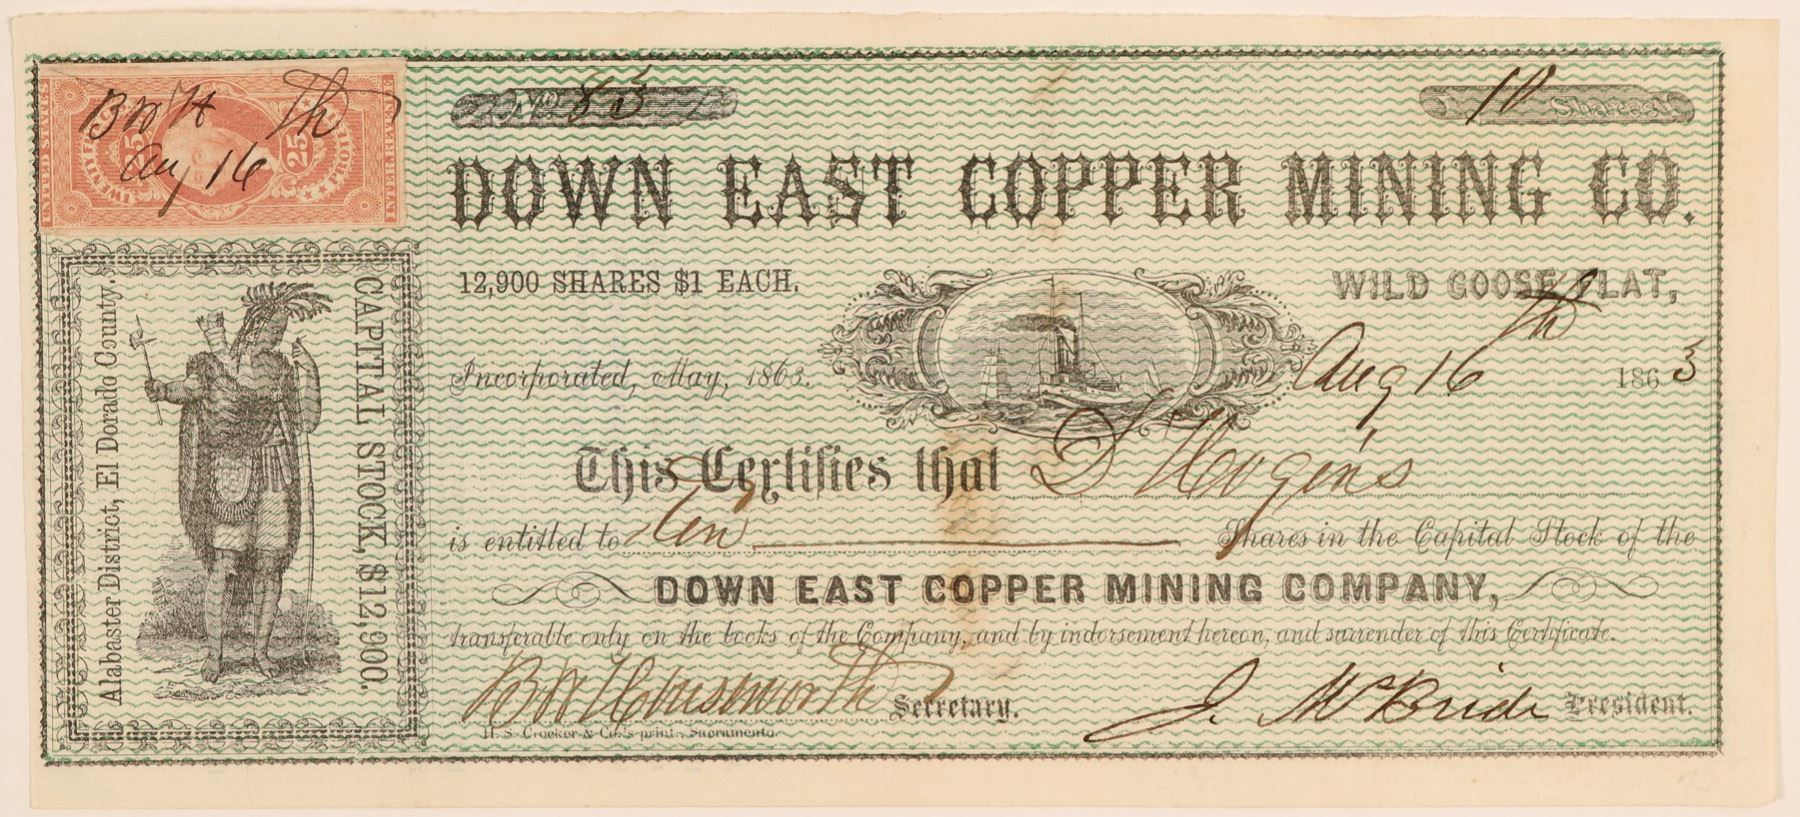 UNITED STATES
INTER. REVENUE
25 25
B W H th
Aug 16
No. 85
10 Shares
DOWN EAST COPPER MINING CO.
12,900 SHARES $1 EACH.
WILD GOOSE FLAT,
Incorporated, May, 1863.
Aug 16th 1863
This Certifies that D Hogins
is entitled to Ten Shares in the Capital Stock of the
DOWN EAST COPPER MINING COMPANY,
transferable only on the books of the Company, and by indorsement hereon, and surrender of this Certificate.
B W Housworth Secretary.
J. McBride President.
H. S. Crocker & Co.'s print., Sacramento.
Alabaster District, El Dorado County.
CAPITAL STOCK, $12,900.